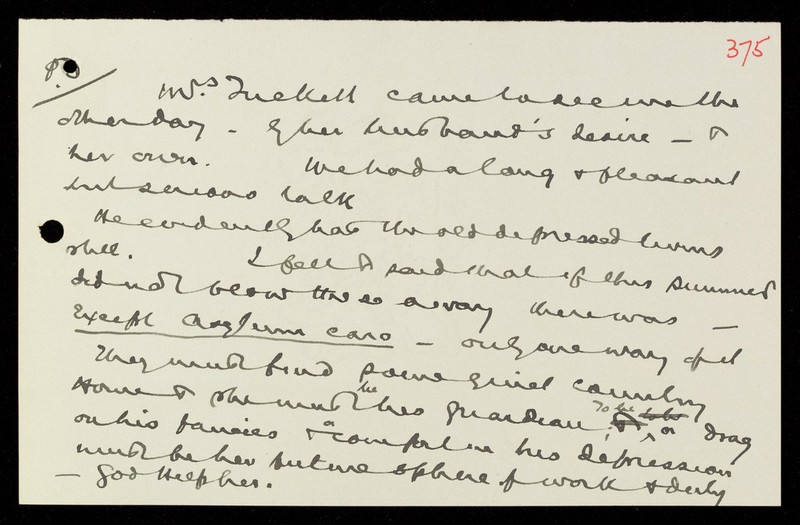 375
PS
Mrs Tuckett came to see me the
other day - By her husband's desire - &
her own. We had a long & pleasant
but serious talk
He evidently has the old depressed turns
still. I felt & said that if this summer
did not blow these away there was -
Except Asylum care - only one way of it
They must find some quiet country
Home & she must be his guardian, to be a drag
on his fancies & a comfort in his depression
must be her future sphere of work & duty
- God Help her.